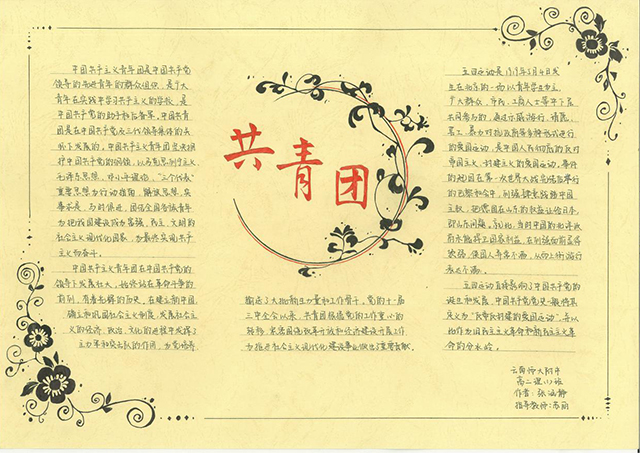 共青团
中国共产主义青年团是中国共产党
领导的先进青年的群众组织，是广大
青年在实践中学习共产主义的学校，是
中国共产党的助手和后备军。中国共青
团是在中国共产党及三代领导集体的关
怀下发展的。中国共产主义青年团坚决拥
护中国共产党的纲领，以马克思列宁主义、
毛泽东思想、邓小平理论、“三个代表”
重要思想为行动指南，解放思想，实
事求是，与时俱进，团结全国各族青年
为把我国建设成为富强、民主、文明的
社会主义现代化国家，为最终实现共产
主义而奋斗。
中国共产主义青年团在中国共产党的
领导下发展壮大，始终站在革命斗争的
前列，有着光辉的历史，在建立新中国，
确立和巩固社会主义制度，发展社会主
义的经济、政治、文化的进程中发挥了
主力军和突击队的作用，为党培养
输送了大批新生力量和工作骨干。党的十一届
三中全会以来，共青团根据党的工作重心的
转移，紧密围绕改革开放和经济建设开展工作
为推进社会主义现代化建设事业做出了重要贡献。
五四运动是1919年5月4日发
生在北京的一场以青年学生为主，
广大群众、市民、工商人士等中下层
共同参与的，通过示威游行、请愿、
罢工、暴力对抗政府等多种形式进行
的爱国运动，是中国人民彻底的反对
帝国主义、封建主义的爱国运动。事件
的起因在第一次世界大战完结后举行
的巴黎和会中，列强肆意践踏中国
主权，把德国在山东的权益让给日本，
即山东问题。
府未能捍卫国家利益，
五四运动直接影响了中国共产党的
诞生和发展，中国共产党党史一般将其
定义为“反帝反封建的爱国运动”，并以
此作为旧民主主义革命和新民主主义革
命的分水岭。
云南师大附中
作者：张涵静